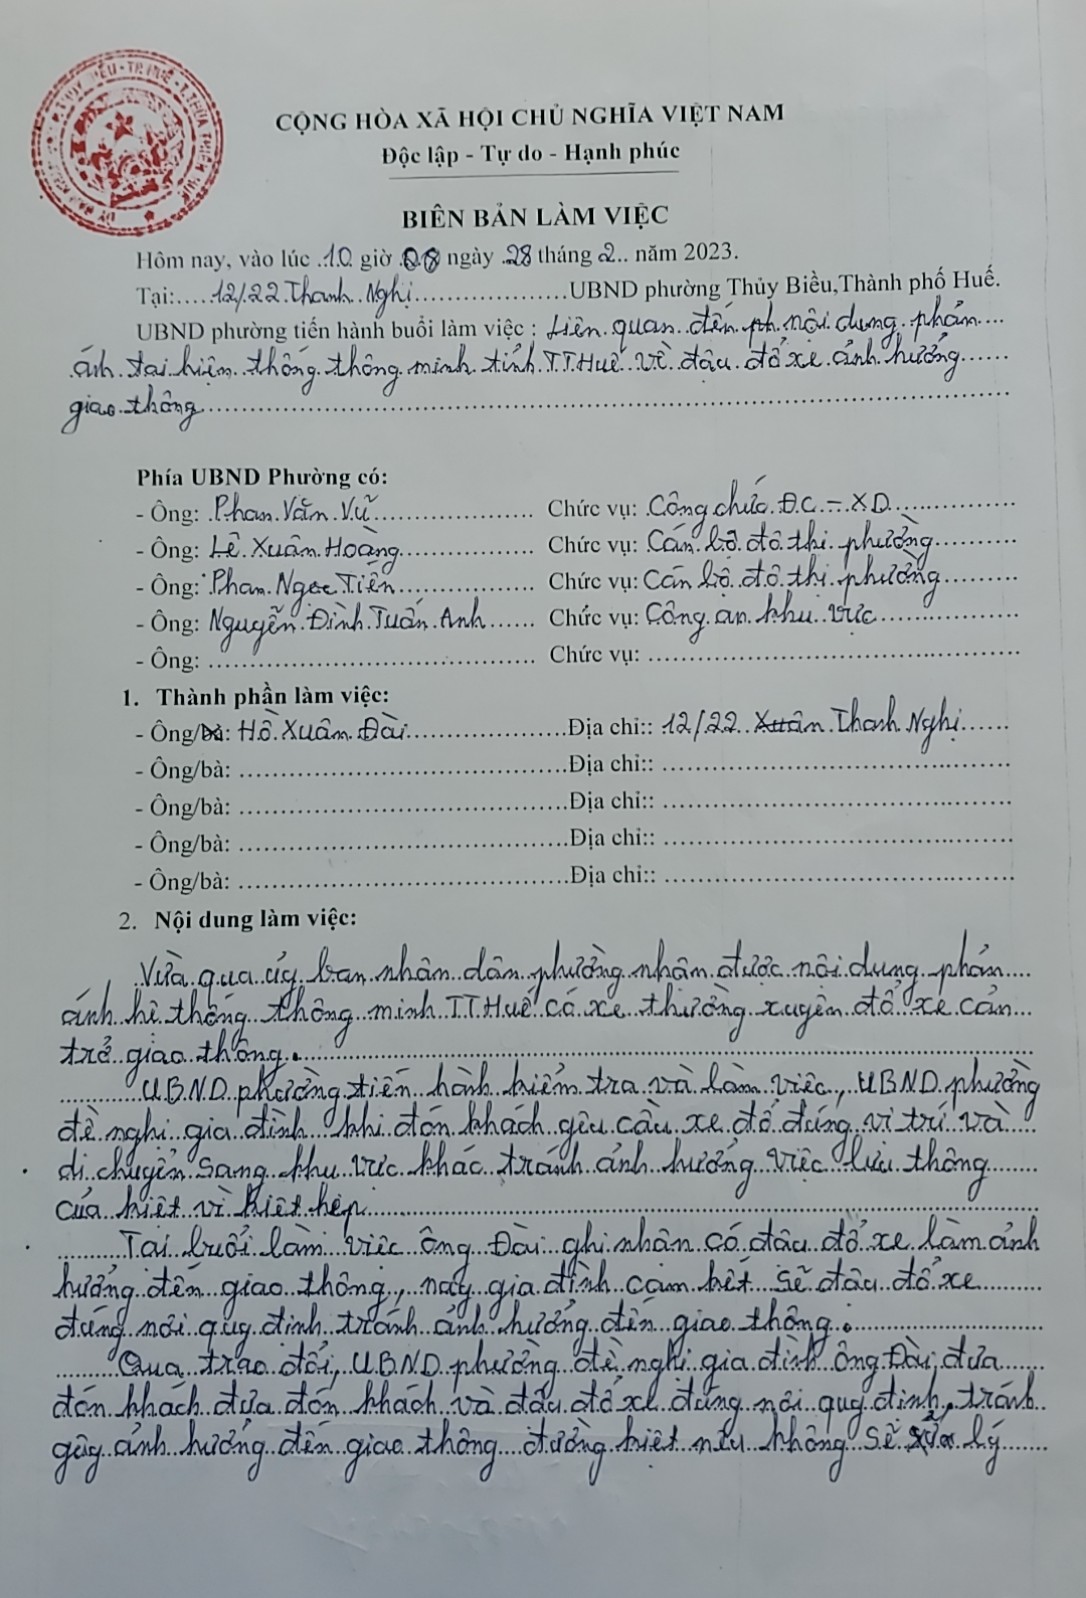 CỘNG HÒA XÃ HỘI CHỦ NGHĨA VIỆT NAM
Độc lập - Tự do - Hạnh phúc
BIÊN BẢN LÀM VIỆC
Hôm nay, vào lúc .10. giờ 08 ngày .28 tháng .2.. năm 2023.
Tại:....12/22 Thanh Nghị....................UBND phường Thủy Biều,Thành phố Huế.
UBND phường tiến hành buổi làm việc : Liên quan đến ph nội dung phản
ánh tại hiện thống thông minh tỉnh T.T.Huế về đậu đổ xe ảnh hưởng
giao thông
Phía UBND Phường có:
- Ông: Phan Văn Vũ Chức vụ: Công chức Đ.C - XD
- Ông: Lê Xuân Hoàng Chức vụ: Cán bộ đô thị phường
- Ông: Phan Ngọc Tiện Chức vụ: Cán bộ đô thị phường
- Ông: Nguyễn Đình Tuấn Anh Chức vụ: Công an khu vực
- Ông: Chức vụ:
1. Thành phần làm việc:
- Ông/bà: Hồ Xuân Đài Địa chỉ:: 12/22 Xuân Thanh Nghị
- Ông/bà: Địa chỉ::
- Ông/bà: Địa chỉ::
- Ông/bà: Địa chỉ::
- Ông/bà: Địa chỉ::
2. Nội dung làm việc:
Vừa qua ủy ban nhân dân phường nhận được nội dung phản
ánh hệ thống thông minh T.T.Huế có xe thường xuyên đổ xe cản
trở giao thông.
UBND phường tiến hành kiểm tra và làm việc, UBND phường
đề nghị gia đình khi đón khách yêu cầu xe đổ đúng vị trí và
di chuyển sang khu vực khác tránh ảnh hưởng việc lưu thông
của kiệt vì kiệt hẹp
Tại buổi làm việc ông Đài ghi nhận có đậu đổ xe làm ảnh
hưởng đến giao thông, nay gia đình cam kết sẽ đậu đổ xe
đúng nơi quy định tránh ảnh hưởng đến giao thông.
Qua trao đổi, UBND phường đề nghị gia đình ông Đài đưa
đón khách đưa đón khách và đậu đổ xe đúng nơi quy định, tránh
gây ảnh hưởng đến giao thông đường kiệt nếu không sẽ xử lý